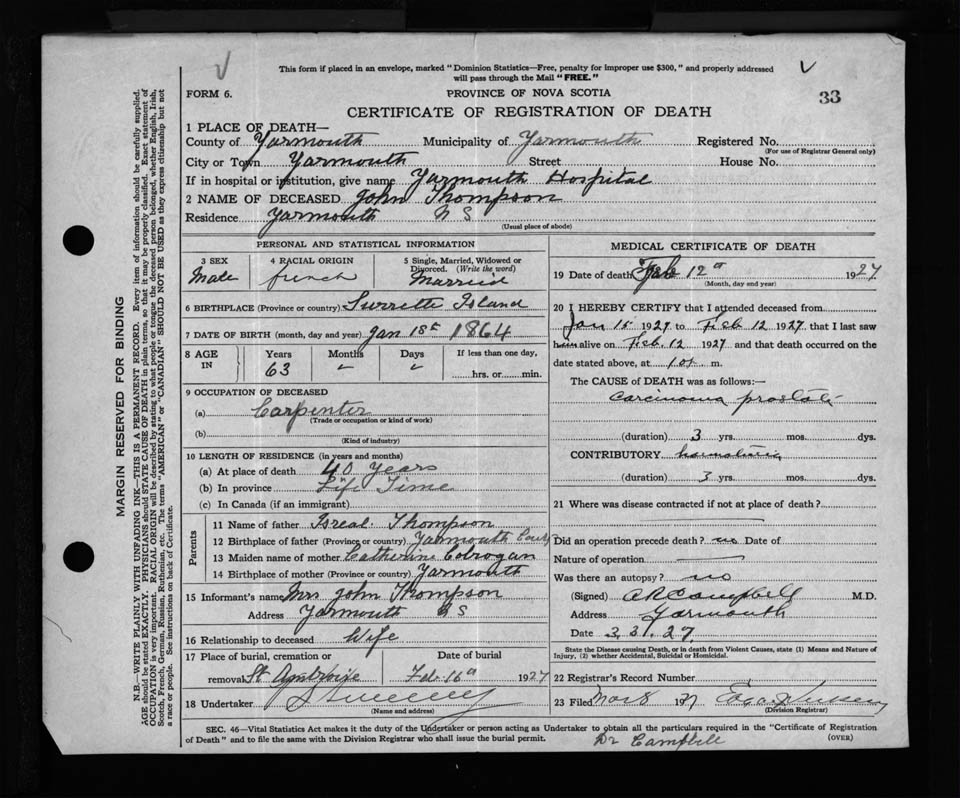 This form if placed in an envelope, marked "Dominion Statistics—Free, penalty for improper use $300," and properly addressed
will pass through the Mail "FREE."
FORM 6.
PROVINCE OF NOVA SCOTIA
33
CERTIFICATE OF REGISTRATION OF DEATH
1 PLACE OF DEATH—
County of Yarmouth Municipality of Yarmouth Registered No.
(For use of Registrar General only)
City or Town Yarmouth Street House No.
If in hospital or institution, give name Yarmouth Hospital
2 NAME OF DECEASED John Thompson
Residence Yarmouth N S
(Usual place of abode)
PERSONAL AND STATISTICAL INFORMATION
3 SEX 4 RACIAL ORIGIN 5 Single, Married, Widowed or
Divorced. (Write the word)
Male french Married
6 BIRTHPLACE (Province or country) Surrette Island
7 DATE OF BIRTH (month, day and year) Jan 18 1864
8 AGE IN Years Months Days If less than one day,
63 – – hrs. or min.
9 OCCUPATION OF DECEASED
(a) Carpenter
(Trade or occupation or kind of work)
(b)
(Kind of industry)
10 LENGTH OF RESIDENCE (in years and months)
(a) At place of death 40 years
(b) In province Life Time
(c) In Canada (if an immigrant)
Parents
11 Name of father Isreal Thompson
12 Birthplace of father (Province or country) Yarmouth County
13 Maiden name of mother Catherine
14 Birthplace of mother (Province or country) Yarmouth
15 Informant's name Mrs John Thompson
Address Yarmouth N S
16 Relationship to deceased Wife
17 Place of burial, cremation or Date of burial
removal St. Ambroise Feb. 16th 1927
18 Undertaker
(Name and address)
MEDICAL CERTIFICATE OF DEATH
19 Date of death Feb 12th 1927
(Month, day and year)
20 I HEREBY CERTIFY that I attended deceased from
Jan 15 1927 to Feb 12 1927 that I last saw
him alive on Feb. 12 1927 and that death occurred on the
date stated above, at m.
The CAUSE of DEATH was as follows:—
Carcinoma prostate
(duration) 3 yrs. mos. dys.
CONTRIBUTORY haematuria
(duration) 3 yrs. mos. dys.
21 Where was disease contracted if not at place of death?
Did an operation precede death? no Date of
Nature of operation
Was there an autopsy? no
(Signed) A R Campbell M.D.
Address Yarmouth
Date 3.31.27.
State the Disease causing Death, or in death from Violent Causes, state (1) Means and Nature of
Injury, (2) whether Accidental, Suicidal or Homicidal.
22 Registrar's Record Number
23 Filed 27
(Division Registrar)
SEC. 46—Vital Statistics Act makes it the duty of the Undertaker or person acting as Undertaker to obtain all the particulars required in the "Certificate of Registration
of Death" and to file the same with the Division Registrar who shall issue the burial permit.
(OVER)
Dr Campbell
MARGIN RESERVED FOR BINDING
N.B.—WRITE PLAINLY WITH UNFADING INK—THIS IS A PERMANENT RECORD. Every item of information should be carefully supplied.
AGE should be stated EXACTLY. PHYSICIANS should STATE CAUSE OF DEATH in plain terms, so that it may be properly classified. Exact statement of
OCCUPATION is very important. RACIAL ORIGIN will be described by stating to what people or tongue the deceased person belonged, whether English, Irish,
Scotch, French, German, Russian, Ruthenian, etc. The terms "AMERICAN" or "CANADIAN" SHOULD NOT BE USED as they express citizenship but not
a race or people. See instructions on back of Certificate.